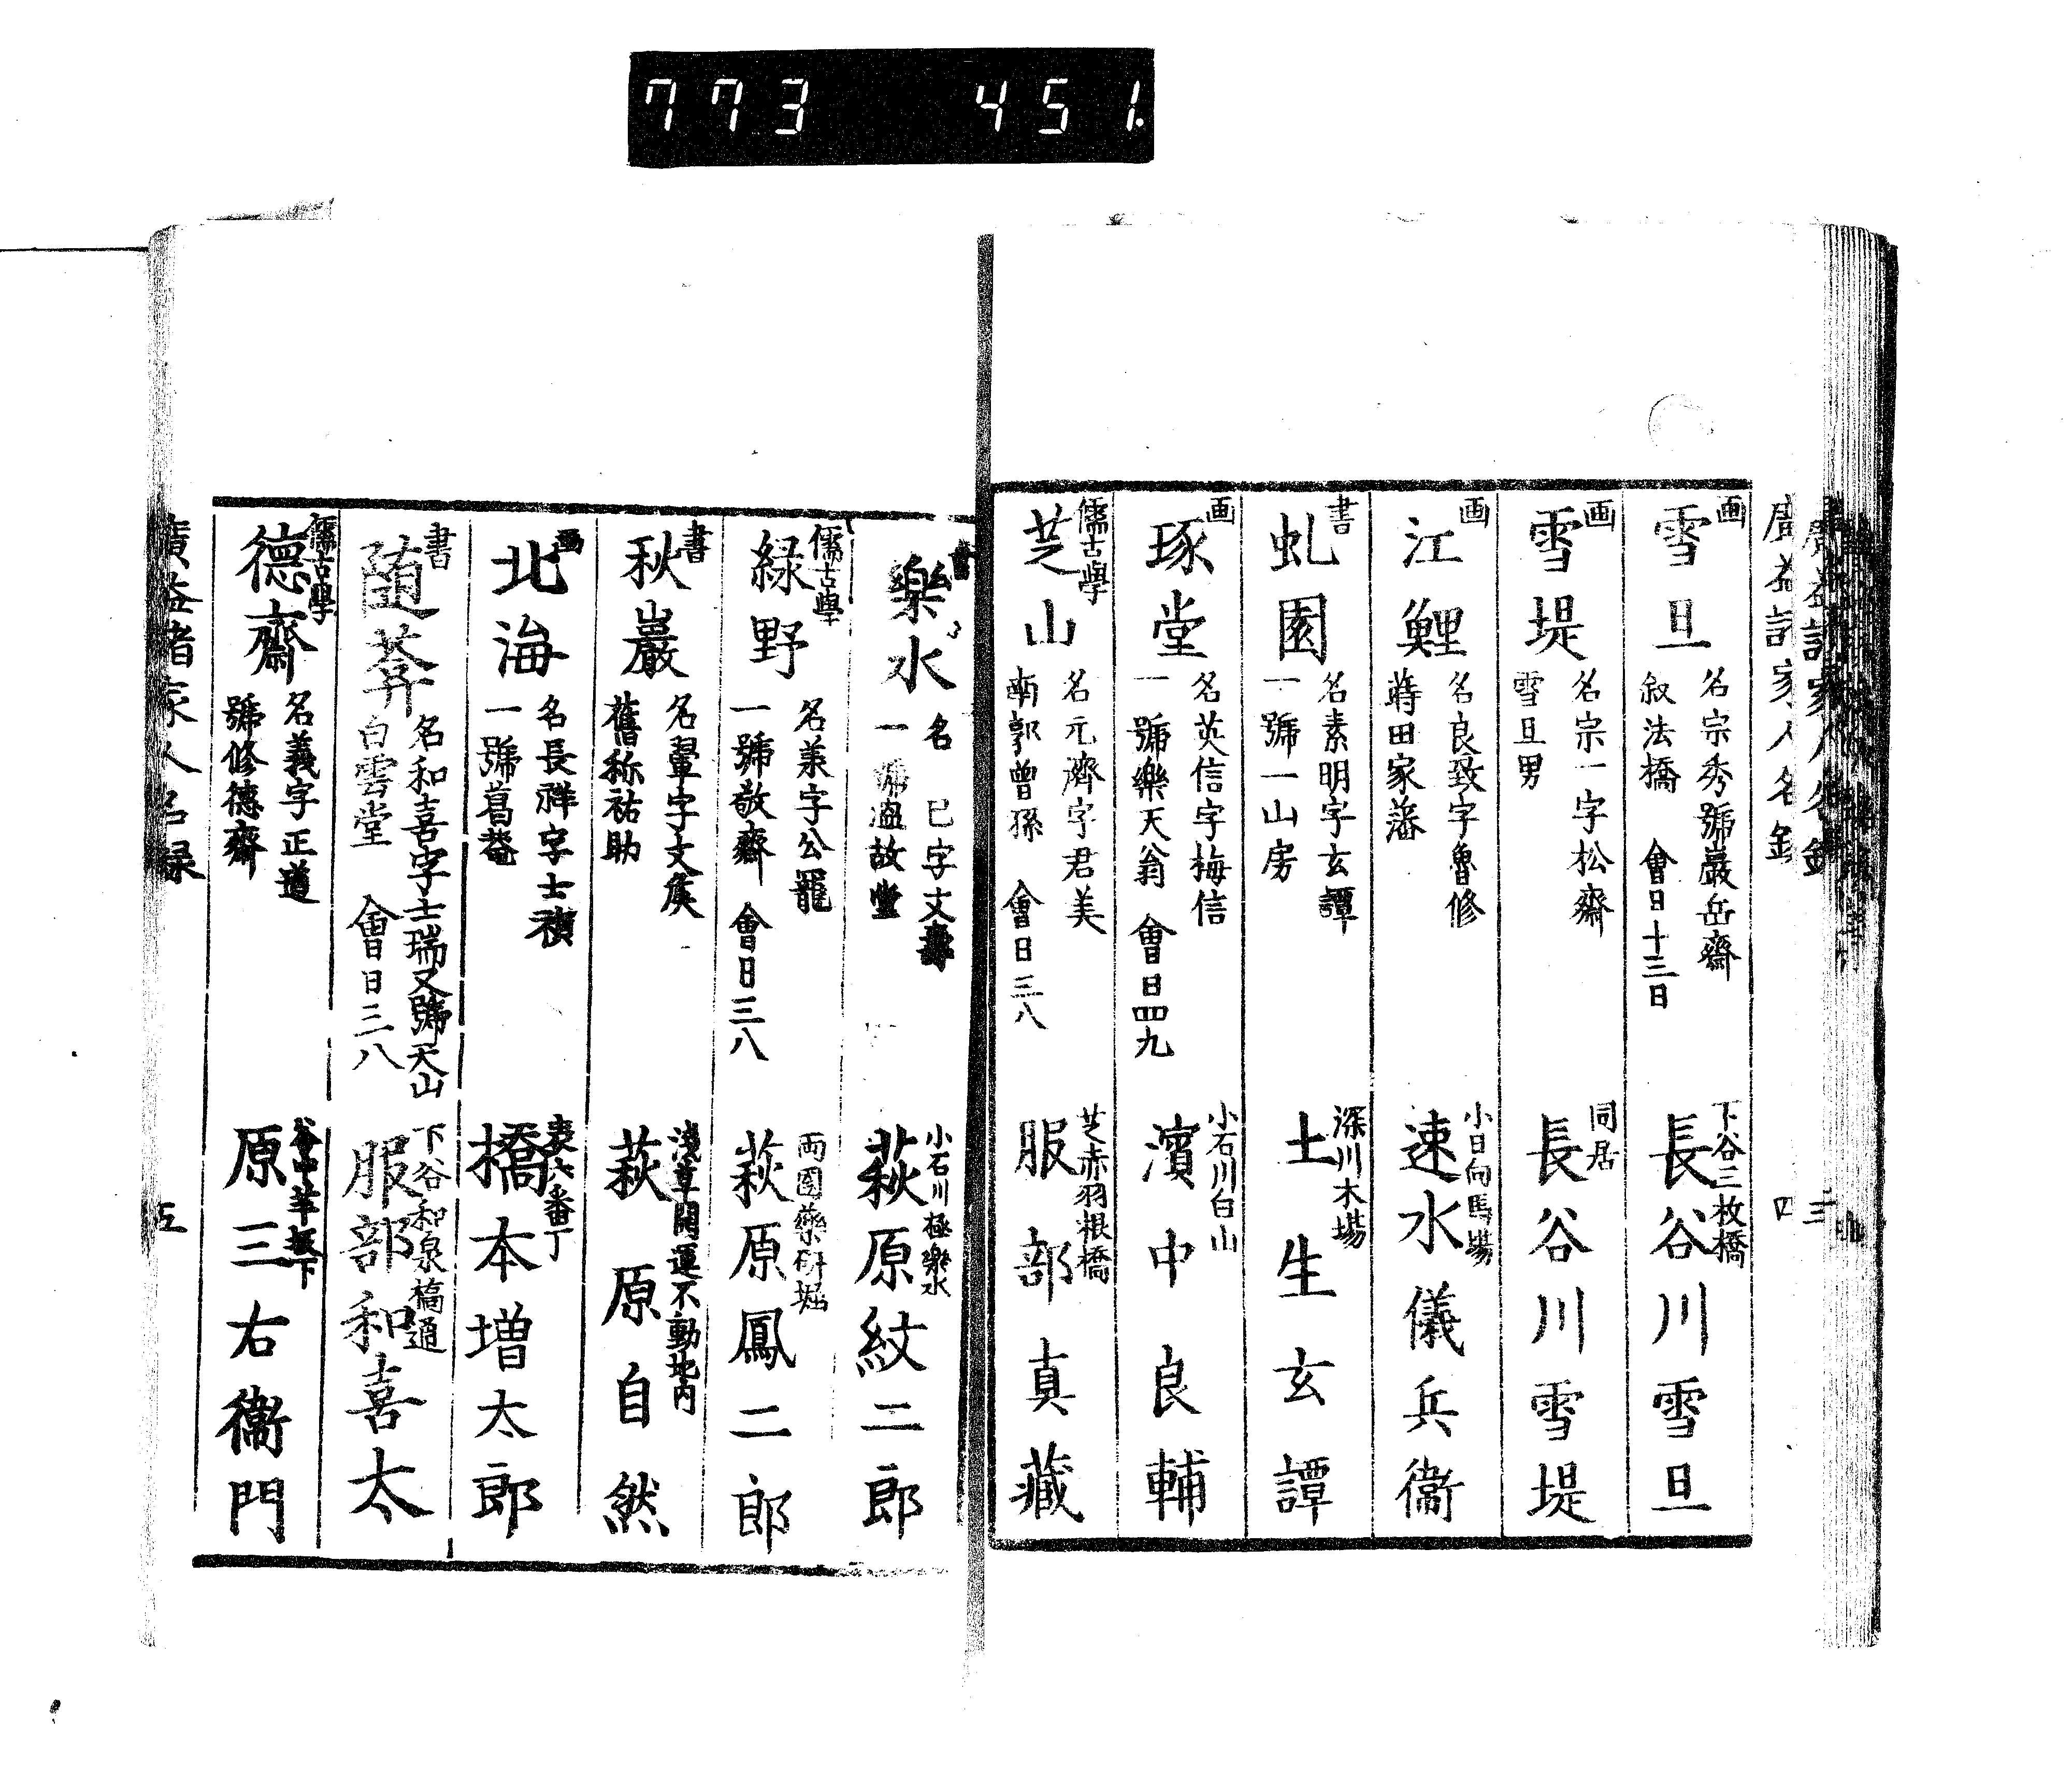 773 451.
廣益諸家人名錄
四
画
雪旦
名宗秀號巖岳齋
叙法橋 會日十三日
下谷三枚橋
長谷川雪旦
画
雪堤
名宗一字松齋
雪旦男
同居
長谷川雪堤
画
江鯉
名良致字魯修
蒔田家藩
小日向馬場
速水儀兵衞
書
虬園
名素明字玄譚
一號一山房
深川木場
土生玄譚
画
琢堂
名英信字梅信
一號樂天翁 會日四九
小石川白山
濱中良輔
儒古學
芝山
名元濟字君美
南郭曾孫 會日三八
芝赤羽根橋
服部真藏
書
樂水
名 已字文壽
一號温故堂
小石川極樂水
萩原紋二郎
儒古學
緑野
名兼字公羆
一號敬齋 會日三八
両國藥研堀
萩原鳳二郎
書
秋巖
名翬字文侯
舊称祐助
淺草開運不動地内
萩原自然
画
北海
名長祥字士禎
一號葛菴
表六番丁
橋本増太郎
書
随莽
名和喜字士瑞又號天山
白雲堂 會日三八
下谷和泉橋通
服部和喜太
儒古學
德齋
名義字正道
號修德齋
谷中善坂下
原三右衞門
廣益諸家人名録
五